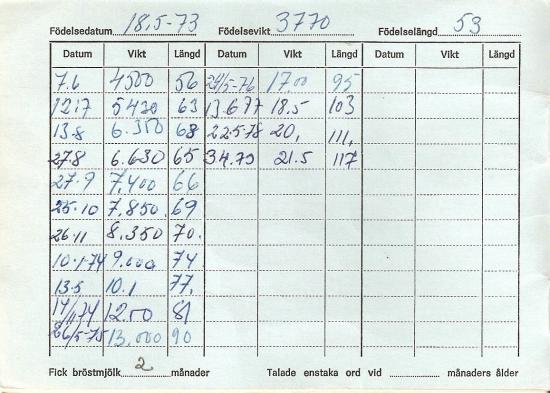 Födelsedatum 18.5-73 Födelsevikt 3770 Födelselängd 53
Datum Vikt Längd Datum Vikt Längd Datum Vikt Längd
7.6 4500 56 24/5-76 17.00 95
12.7 5420 63 13.6.77 18.5 103
13-8 6.350 68 22.5-78 20, 111,
27.8 6.630 65 3.4.79 21.5 117
27-9 7,400 66
25-10 7,850 69
26-11 8,350 70.
10-1-74 9.000 74
13-5 10.1 77,
14/11 74 12.00 81
26/5-75 13,000 90
Fick bröstmjölk 2 månader Talade enstaka ord vid månaders ålder